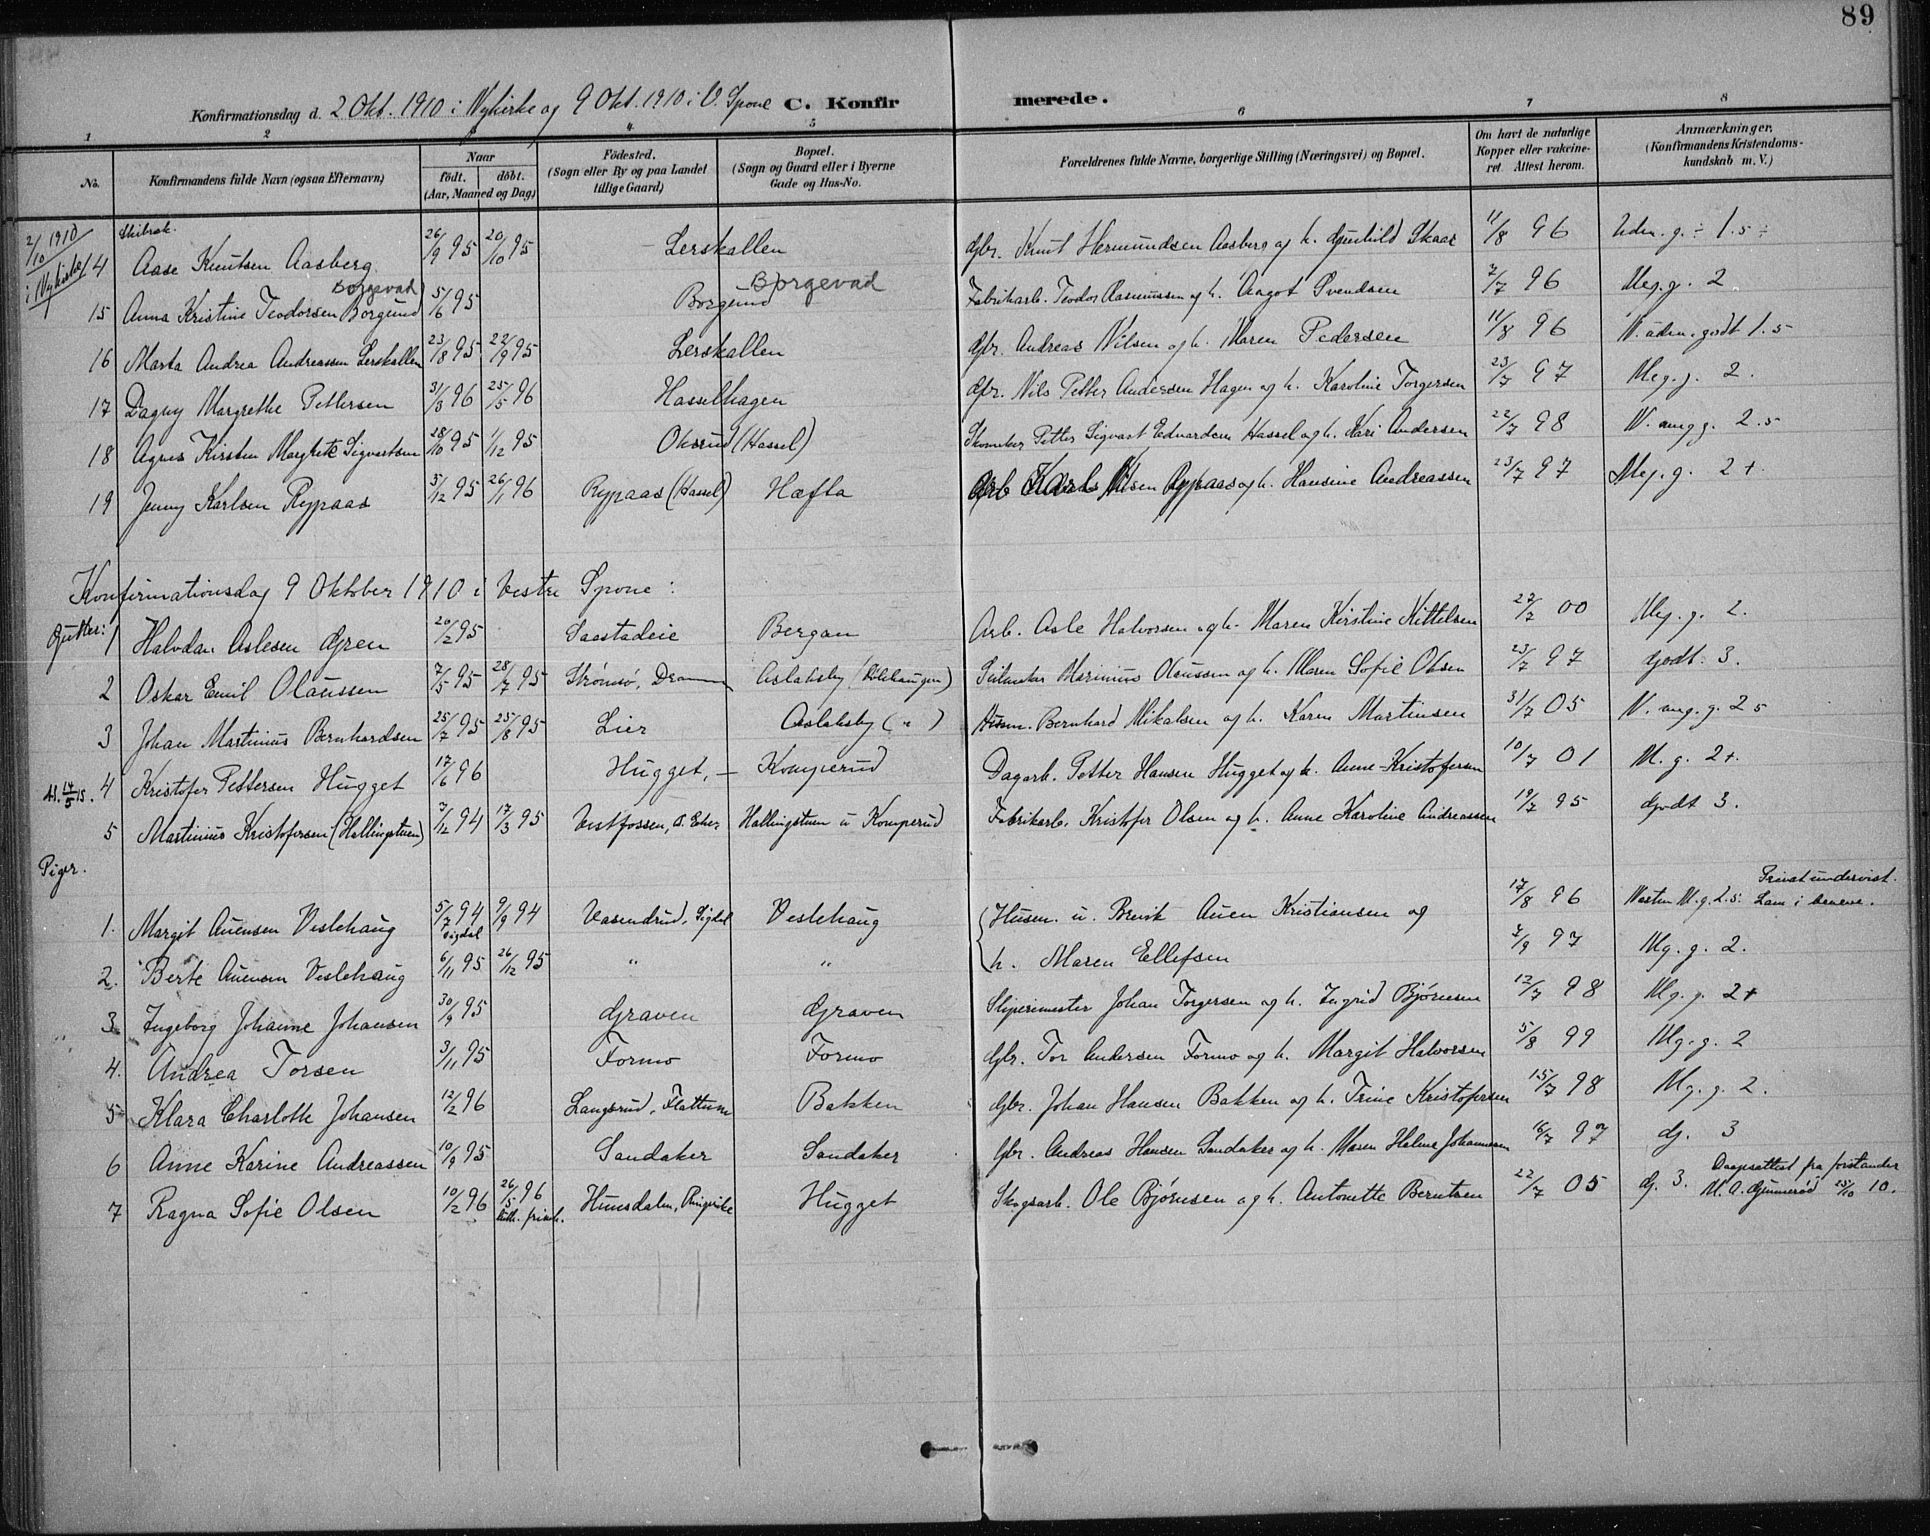 89
Konfirmationsdag d. 2 Okt. 1910 i Nykirke og 9 Okt. 1910 i V. Spone C. Konfirmerede.
1 2 3 4 5 6 7 8
No. Konfirmandens fulde Navn (ogsaa Efternavn) Naar født. døbt. (Aar, Maaned og Dag) Fødested. (Sogn eller By og paa Landet tillige Gaard) Bopæl. (Sogn og Gaard eller i Byerne Gade og Hus-No. Forældrenes fulde Navne, borgerlige Stilling (Næringsvei) og Bopæl. Om havt de naturlige Kopper eller vakcineret Attest herom. Anmærkninger. (Konfirmandens Kristendomskundskab m. V.)
2/10 1910 i Nykirke
14 Aase Knutsen Aasberg 26/9 95 20/10 95 Lerskallen Gbr. Knut Hermundsen Aasberg og h. Gunhild Skaar 11/8 96 Udm. g. ÷ 1.5 ÷
Borgevad Borgevad
15 Anna Kristine Teodorsen Borgund 5/6 95 Borgund Fabrikarb. Teodor Rasmussen og h. Aagot Svendsen 7/7 96 Meg. g. 2
16 Marta Andrea Andreassen Lerskallen 23/8 95 22/9 95 Lerskallen Gbr. Andreas Nilsen og h. Maren Pedersen 11/8 96 N. udm. godt 1.5
17 Dagny Margrethe Pettersen 31/3 96 25/5 96 Hasselhagen Gbr. Nils Petter Andersen Hagen og h. Karoline Torgersen 23/7 97 Meg. g. 2.
18 Agnes Kirsten Margrete Sigvartsen 28/10 95 1/12 95 Oksrud (Hassel) Skomker Petter Sigvart Edvardsen Hassel og h. Kari Andersen 22/7 98 N. meg g. 2.5
19 Jenny Karlsen Rypaas 31/12 95 26/1 96 Rypaas (Hassel) Hæfta Arb Karl Nilsen Rypaas og h. Hansine Andreassen 23/7 97 Meg. g. 2+
Konfirmationsdag 9 Oktober 1910 i Vestre Spone:
Gutter:
1 Halvdan Aslesen Gren 20/2 95 Saastadeie Bergan Arb. Asle Halvorsen og h. Maren Kirstine Kittelsen 27/7 00 Meg. g. 2.
2 Oskar Emil Olaussen 7/5 95 28/7 95 Strømsø, Dramm Aslaksby Seilmaker Marinius Olaussen og h. Maren Sofie Olsen 23/7 97 Godt. 3.
3 Johan Martinius Bernhardsen 25/7 95 25/8 95 Lier Aslaksby ( " ) Husm. Bernhard Mikalsen og h. Karen Martinsen 31/7 05 N. meg. g. 2 5
4 Kristofer Pettersen Hugget 17/6 96 Hugget, – Komperud Dagarb. Petter Hansen Hugget og h. Anne Kristofersen 10/7 01 M. g. 2+.
14/5 15.
5 Martinius Kristofersen (Hallingstuen) 7/12 94 17/3 95 Vestfossen, Ø. Eker Hallingstuen u Komperud Fabrikarb. Kristofer Olsen og h. Anne Karoline Andreassen 19/7 95 Godt 3.
Piger.
1. Margit Auensen Veslehaug 5/7 94 Sigdal 9/9 94 Vasendrud, Sigdal Veslehaug Husm. u. Brevik Auen Kristiansen og 17/8 96 Næsten M. g. 2.5. Privat undervist.
2. Berte Auensen Veslehaug 6/11 95 26/12 95 " " h. Maren Ellefsen 7/9 97 Mg. g. 2.
3 Ingeborg Johanne Johansen 30/9 95 Graven Graven Sliperimester Johan Torgersen og h. Ingrid Bjørnsen 12/7 98 Mg. g. 2+
4. Andrea Torsen 3/11 95 Formo Formo Gbr. Tor Andersen Formo og h. Margit Halvorsen 5/8 99 Mg. g. 2
5 Klara Charlotte Johansen 12/2 96 Langsrud, Flattum Bakken Gbr. Johan Hansen Bakken og h. Trine Kristofersen 15/7 98 Mg. g. 2.
6 Anne Karine Andreassen 10/9 95 Sandaker Sandaker Gbr. Andreas Hansen Sandaker og h. Maren Helene Johannesen 16/7 97 G. 3
7 Ragna Sofie Olsen 10/2 96 26/5 96 Luth. frim. Hunsdalen, Ringerike Hugget Skogsarb. Ole Bjørnsen og h. Antonette Berntsen 22/7 05 G. 3. Daapsattest fra forstander M. A. Gunnerød 25/10 10.